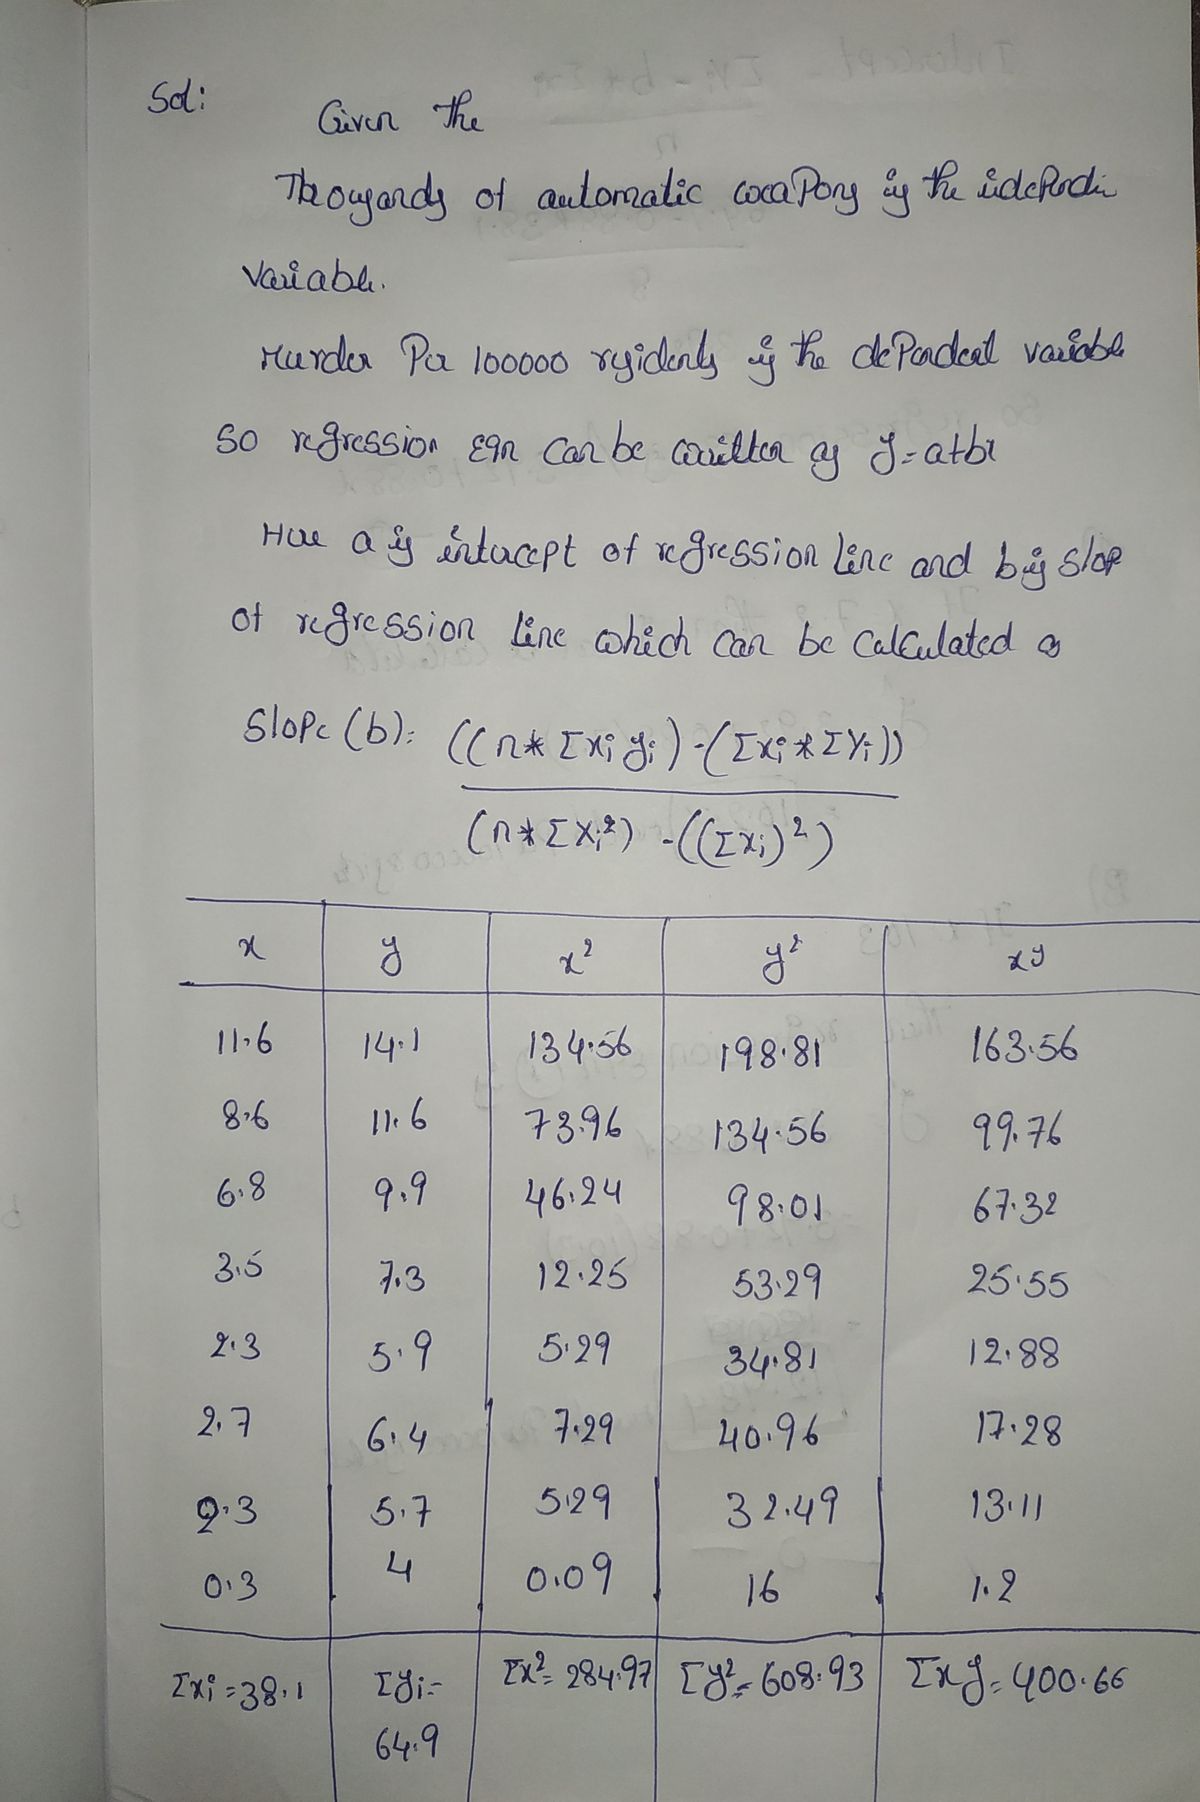 Sol:
Given the
Thousands of automatic weapons is the independen
variable.
Murder Per 100000 residents is the dependent variable
So regression Eqn can be written as y = a+bx
Here a is intercept of regression line and b is slope
of regression line which can be calculated as
Slope (b): ((n * Σxi yi) - (Σxi * ΣYi))
(n * Σxi²) - ((Σxi)²)
x y x² y² xy
11.6 14.1 134.56 198.81 163.56
8.6 11.6 73.96 134.56 99.76
6.8 9.9 46.24 98.01 67.32
3.5 7.3 12.25 53.29 25.55
2.3 5.9 5.29 34.81 12.88
2.7 6.4 7.29 40.96 17.28
2.3 5.7 5.29 32.49 13.11
0.3 4 0.09 16 1.2
Σxi = 38.1 Σyi = Σx² = 284.97 Σy² = 608.93 Σxy = 400.66
64.9